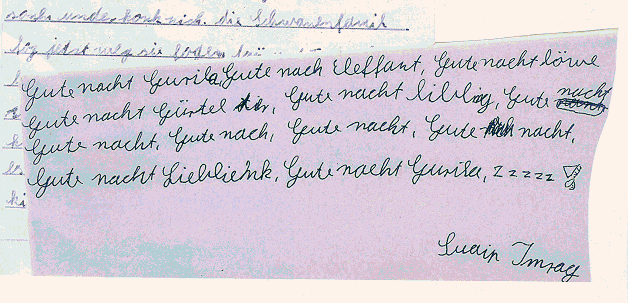 die Schwanenfamil
jetzt weg sie
Gute nacht Gurila, Gute nach Eleffant, Gute nacht löwe
Gute nacht Gürtel tir, Gute nacht liblig, Gute nacht
Gute nacht, Gute nach, Gute nacht, Gute nacht,
Gute nacht Liebliehk, Gute nacht Gurila, z z z z z